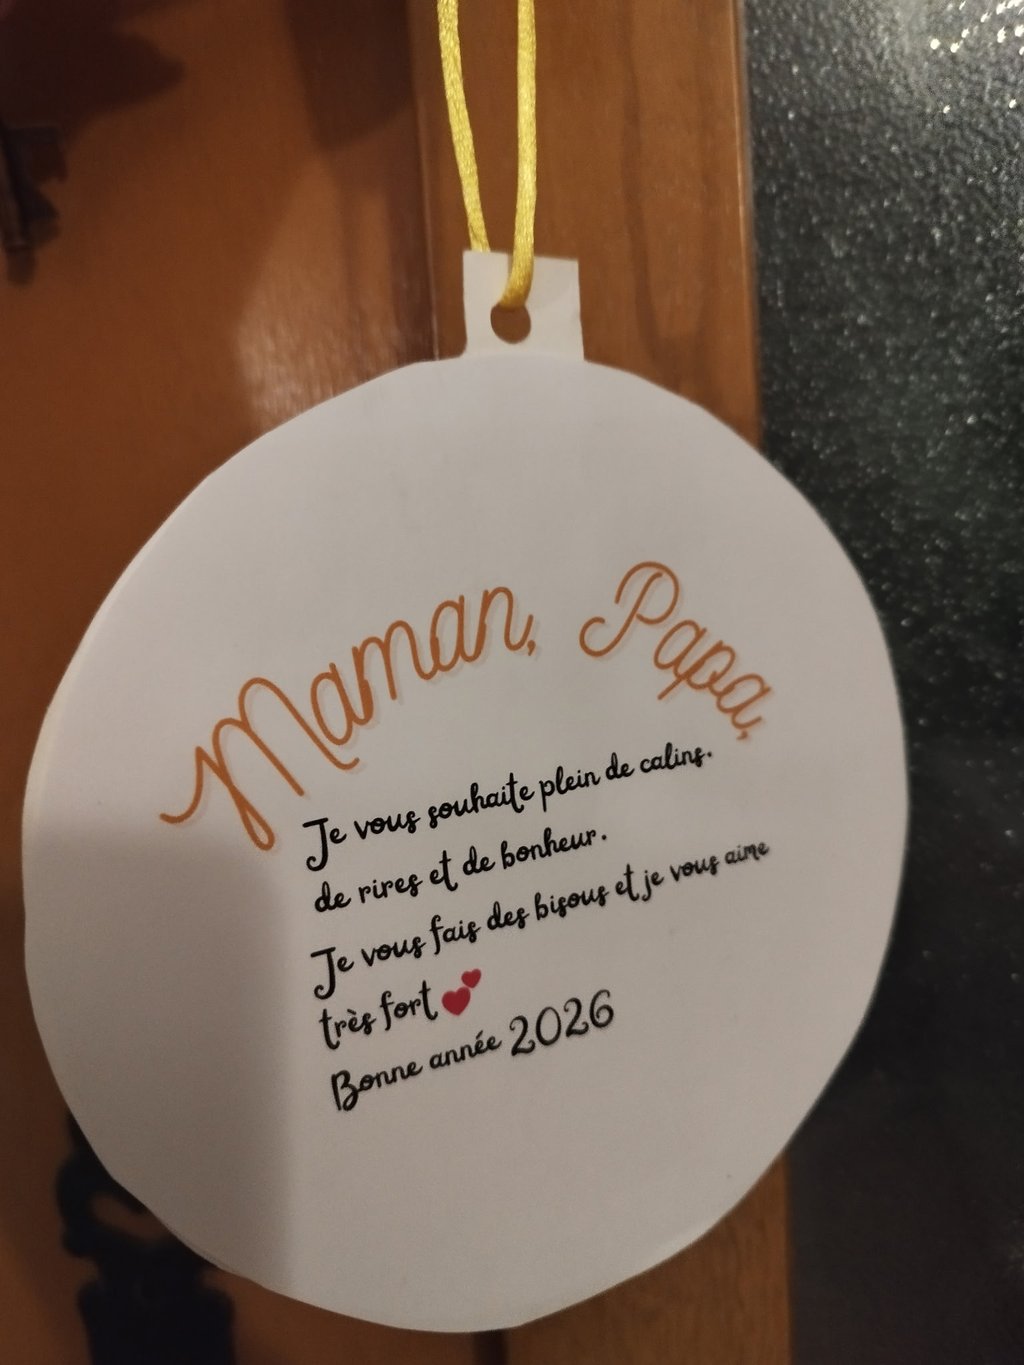 Maman, Papa,
Je vous souhaite plein de calins.
de rires et de bonheur.
Je vous fais des bisous et je vous aime
très fort 💕
Bonne année 2026